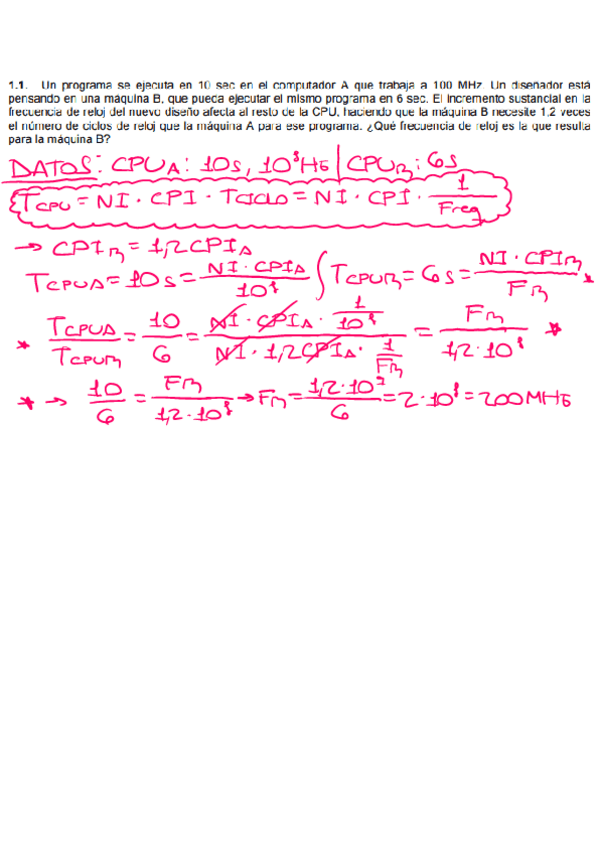 1.1. Un programa se ejecuta en 10 sec en el computador A que trabaja a 100 MHz. Un diseñador está
pensando en una máquina B, que pueda ejecutar el mismo programa en 6 sec. El incremento sustancial en la
frecuencia de reloj del nuevo diseño afecta al resto de la CPU, haciendo que la máquina B necesite 1,2 veces
el número de ciclos de reloj que la máquina A para ese programa. ¿Qué frecuencia de reloj es la que resulta
para la máquina B?
DATOS: CPU_A: 10s, 10^8 Hz | CPU_B: 6s
T_CPU = NI · CPI · Tciclo = NI · CPI · 1/Freq
→ CPI_B = 1,2 CPI_A
T_CPUA = 10s = NI · CPI_A / 10^8 ∫ T_CPUB = 6s = NI · CPI_B / F_B *
* T_CPUA / T_CPUB = 10/6 = NI · CPI_A · 1/10^8 / NI · 1,2 CPI_A · 1/F_B = F_B / 1,2 · 10^8 *
* → 10/6 = F_B / 1,2 · 10^8 → F_B = 1,2 · 10^9 / 6 = 2 · 10^8 = 200 MHz